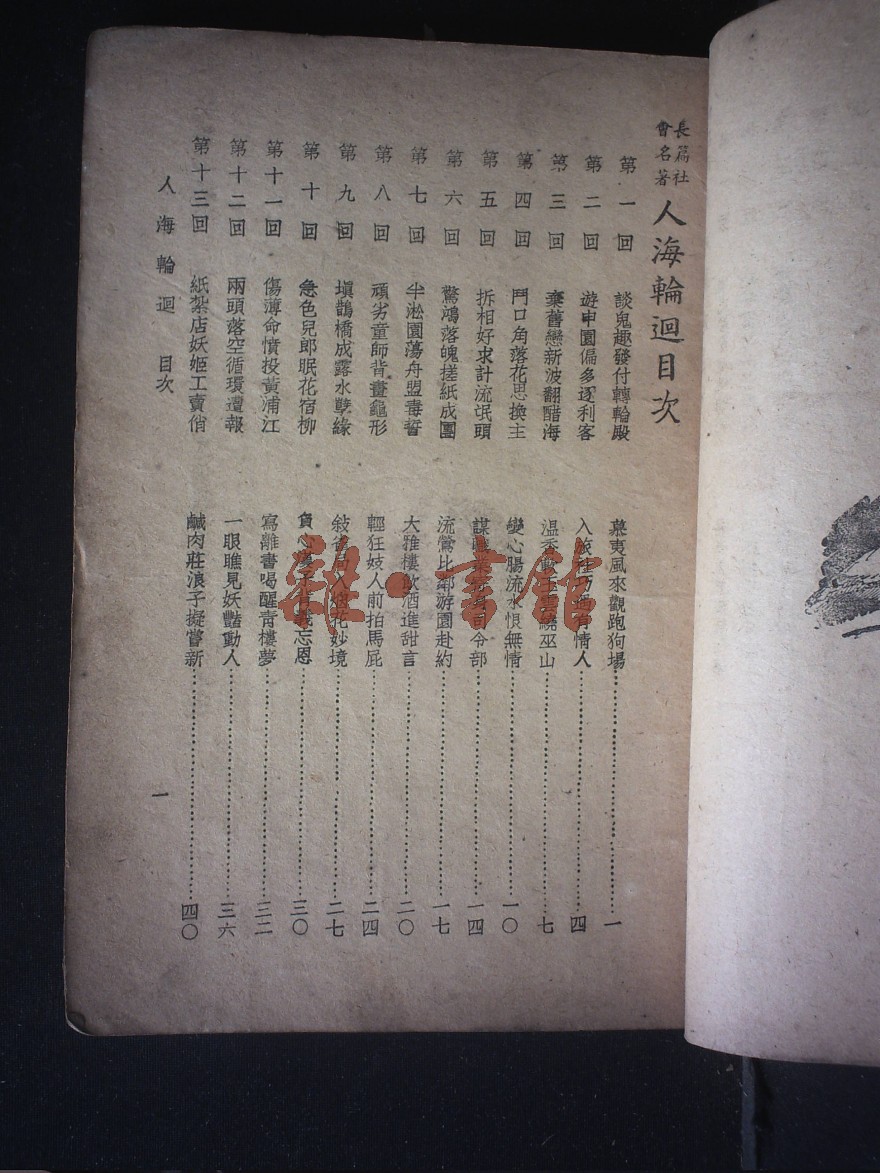 長篇社
會名著
人海輪迴目次
第一回 談鬼趣發付轉輪殿 慕夷風來觀跑狗場 一
第二回 遊申園偏多逐利客 入旅社巧遇有情人 四
第三回 棄舊戀新波翻醋海 温香軟玉雲繞巫山 七
第四回 鬥口角落花思換主 變心腸流水恨無情 一〇
第五回 拆相好求計流氓頭 謀職 司令部 一四
第六回 驚鴻落魄搓紙成團 流鶯比鄰游園赴約 一七
第七回 半淞園蕩舟盟毒誓 大雅樓飲酒進甜言 二〇
第八回 頑劣童師背畫龜形 輕狂妓人前拍馬屁 二四
第九回 塡鵲橋成露水孽緣 敍 入烟花妙境 二七
第十回 急色兒郎眠花宿柳 負心漢子背義忘恩 三〇
第十一回 傷薄命憤投黃浦江 寫離書喝醒靑樓夢 三二
第十二回 兩頭落空循環遭報 一眼瞧見妖豔動人 三六
第十三回 紙紮店妖姬工賣俏 鹹肉莊浪子擬嘗新 四〇
人海輪迴 目次
一
雜·書館